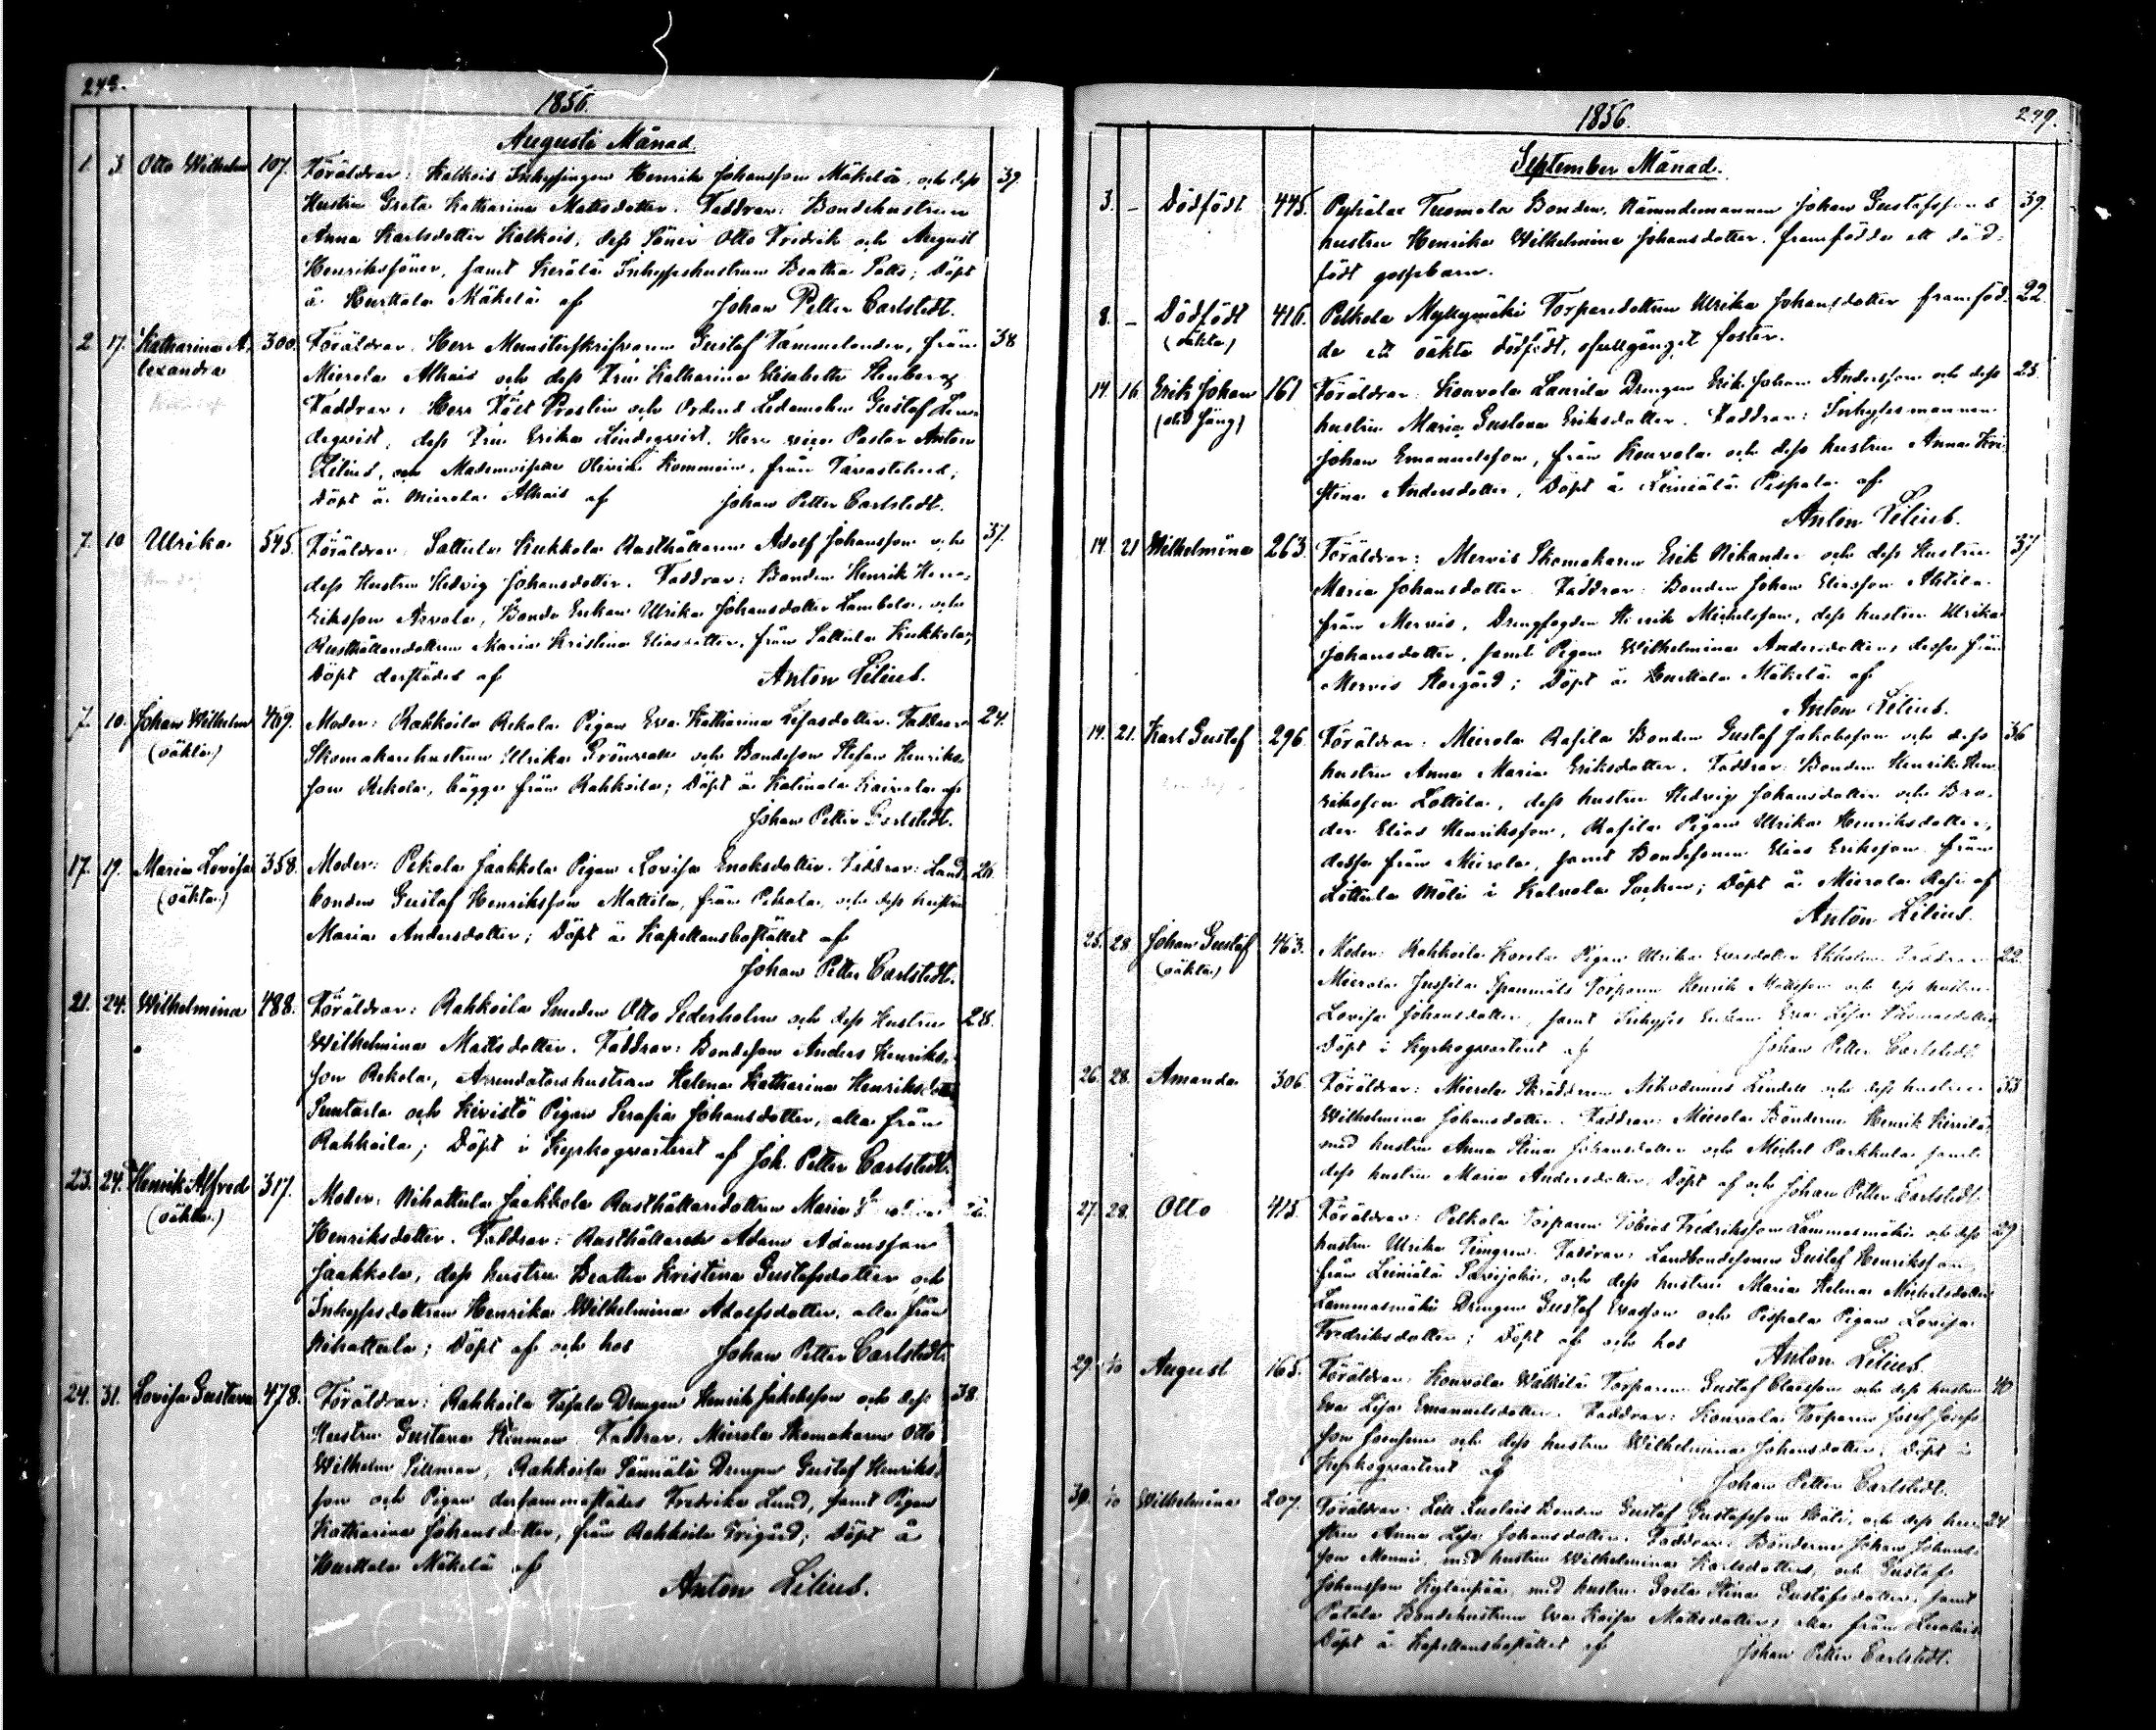 248.
1856.
Augusti Månad.
1. 3. Otto Wilhelm 107. Föräldrar: Kalkois Inhysingen Henrik Johansson Mäkelä, och dess 39.
Hustru Greta Katharina Mattsdotter. Faddrar: Bondehustrun
Anna Karlsdotter Kalkois, dess Söner Otto Fredrik och August
Henrikssöner, samt Kerälä Inhyseshustrun Beatha ; Döpt
å Hurttala Mäkelä af Johan Petter Carlstedt.
2. 17. Katharina A- 300. Föräldrar. Herr Munsterskrifvaren Gustaf Tammelander, från 38
lexandra Mierola Alhais och dess Fru Katharina Elisabeth Stenberg
Faddrar: Herr Fält Prosten och Ordens Ledamoten Gustaf Lin-
deqvist, dess Fru Erika Lindeqvist. Herr vice Pastor Anton
Lilius, och Mademoiselle Olivia , från Tavastehus;
Döpt å Mierola Alhais af Johan Petter Carlstedt.
7. 10 Ulrika 545. Föräldrar. Sattula Kukkola Rusthållaren Adolf Johansson och 37.
dess Hustru Hedvig Johansdotter. Faddrar: Bonden Henrik Hen-
riksson Arvola, Bonde Enkan Ulrika Johansdotter Lambola, och
Rusthållaredottren Maria Kristina Eliasdotter, från Sattula Kukkola;
Döpt derstädes af Anton Lilius.
7. 10. Johan Wilhelm 469. Moder: Rahkoila Rekola Pigan Eva Katharina Lisasdotter. Faddrar 24.
(oäkta) Skomakarehustrun Ulrika Grönvall och Bondeson Stefan Henriks-
son Rekola, bägge från Rahkoila; Döpt å Katinala Kairala af
Johan Petter Carlstedt.
17. 19. Maria Lovisa 358. Moder: Pekola Jaakkola Pigan Lovisa Enoksdotter. Faddrar: Land- 26.
(oäkta) bonden Gustaf Henriksson Mattila, från Pekola, och dess hustru
Maria Andersdotter; Döpt å Kapellansbostället af
Johan Petter Carlstedt.
21. 24. Wilhelmina 488. Föräldrar: Rahkoila Smeden Otto Sederholm och dess Hustru 28.
Wilhelmina Mattsdotter. Faddrar: Bondeson Anders Henriks-
son Rekola, Arrendatorshustrun Helena Katharina Henriksdotter
Puntarla och Kivistö Pigan Serafia Johansdotter, alla från
Rahkoila; Döpt i Kyrkoqvarteret af Joh. Petter Carlstedt.
23. 24. Henrik Alfred 317. Moder: Nihattula Jaakkola Rusthållaredottren Maria
(oäkta) Henriksdotter. Faddrar: Rusthållaren Adam Adamsson
Jaakkola, dess hustru Beatha Kristina Gustafsdotter och
Inhysesdottren Henrika Wilhelmina Adolfsdotter, alla från
Nihattula; Döpt af och hos Johan Petter Carlstedt.
24. 31. Lovisa Gustava 478. Föräldrar: Rahkoila Tasala Drengen Henrik Jakobsson och dess 38.
Hustru Gustava Stenman. Faddrar: Mierola Skomakaren Otto
Wilhelm Sillman, Rahkoila Sänniälä Drengen Gustaf Henriks-
son och Pigan dersammastädes Fredrika Lund, samt Pigan
Katharina Johansdotter, från Rahkoila Frigård; Döpt å
Hurttala Mäkelä af
Anton Lilius.
249.
1856.
September Månad.
3. – Dödfödt 445. Pyhälä Tuomola Bonden, Nämndemannen Johan Gustafssons 39.
hustru Henrika Wilhelmina Johansdotter, framfödde ett död-
född gossebarn.
8. – Dödfödt 416. Pelkola Myllymäki Torparedottren Ulrika Johansdotter framföd- 22.
(oäkta) de ett oäkta dödfödt, ofullgånget foster.
14. 16. Erik Johan 161 Föräldrar: Konvola Laurila Drengen Erik Johan Andersson och dess 25.
hustru Maria Gustava Eriksdotter. Faddrar: Inhysesmannen
Johan Emanuelsson, från Konvola och dess hustru Anna Kri-
stina Andersdotter. Döpt å Leiniälä Pispala af
Anton Lilius.
14. 21 Wilhelmina 263. Föräldrar: Mervis Skomakaren Erik Nikander och dess Hustru 37
Maria Johansdotter. Faddrar: Bonden Johan Eliasson Ahtila
från Mervis, Drengfogden Henrik Michelsson, dess hustru Ulrika
Johansdotter, samt Pigan Wilhelmina Andersdotter, dessa från
Mervis Storgård; Döpt å Hurttala Mäkelä af
Anton Lilius.
19. 21. Karl Gustaf 296. Föräldrar: Mierola Rasila Bonden Gustaf Jakobsson och dess 36
hustru Anna Maria Eriksdotter. Faddrar: Bonden Henrik Hen-
riksson Lottila, dess hustru Hedvig Johansdotter och Bro-
der Elias Henriksson, Rasila Pigan Ulrika Henriksdotter,
dessa från Mierola, samt Bondesonen Elias Eriksson från
Lottula Möli i Kalvola Socken; Döpt å Mierola Rasi af
Anton Lilius.
25. 28. Johan Gustaf 463. Moder: Rahkoila Pigan Ulrika Evasdotter Ekholm. Faddrar 22.
(oäkta) Mierola Jussila Spannmåls Torparen Henrik Mattsson och dess hustru
Lovisa Johansdotter, samt Inhyses Enkan Eva Lisa Thomasdotter
Döpt i Kyrkoqvarteret af Johan Petter Carlstedt.
26. 28. Amanda 306. Föräldrar: Mierola Skräddaren Nikodemus Lindell och dess hustru 33
Wilhelmina Johansdotter. Faddrar: Mierola Bönderne Henrik Kirrilä
med hustru Anna Stina Johansdotter och Michel Parkkula samt
dess hustru Maria Andersdotter. Döpt af och Johan Petter Carlstedt.
27. 28. Otto 415. Föräldrar: Pelkola Torparen Tobias Fredriksson Lammasmäki och dess 29
hustru Ulrika Timgren. Faddrar: Landbondesonen Gustaf Henriksson,
från Leiniälä Savijoki, och dess hustru Maria Helena Michelsdotter
Lammasmäki Drengen Gustaf Evasson och Pispala Pigan Lovisa
Fredriksdotter; Döpt af och hos Anton Lilius.
29. 1/10 August 165. Föräldrar: Konvola Wälkilä Torparen Gustaf Claesson och dess hustru 40
Eva Lisa Emanuelsdotter. Faddrar: Konvola Torparen Josef Josefs-
son och dess hustru Wilhelmina Johansdotter. Döpt i
Kyrkoqvarteret af Johan Petter Carlstedt.
30. 1/10 Wilhelmina 207. Föräldrar: Lill Luolais Bonden Gustaf Gustafsson Skäli, och dess hu- 24
stru Anna Lisa Johansdotter. Faddrar: Bönderne Johan Johans-
son Monni, med hustru Wilhelmina Karlsdotter, och Gustaf
Johansson Kylänpää med hustru Greta Stina Gustafsdotter, samt
Patala Bondehustrun Eva Kaisa Mattsdotter, alla från Luolais
Döpt å Kapellansbostället af Johan Petter Carlstedt.